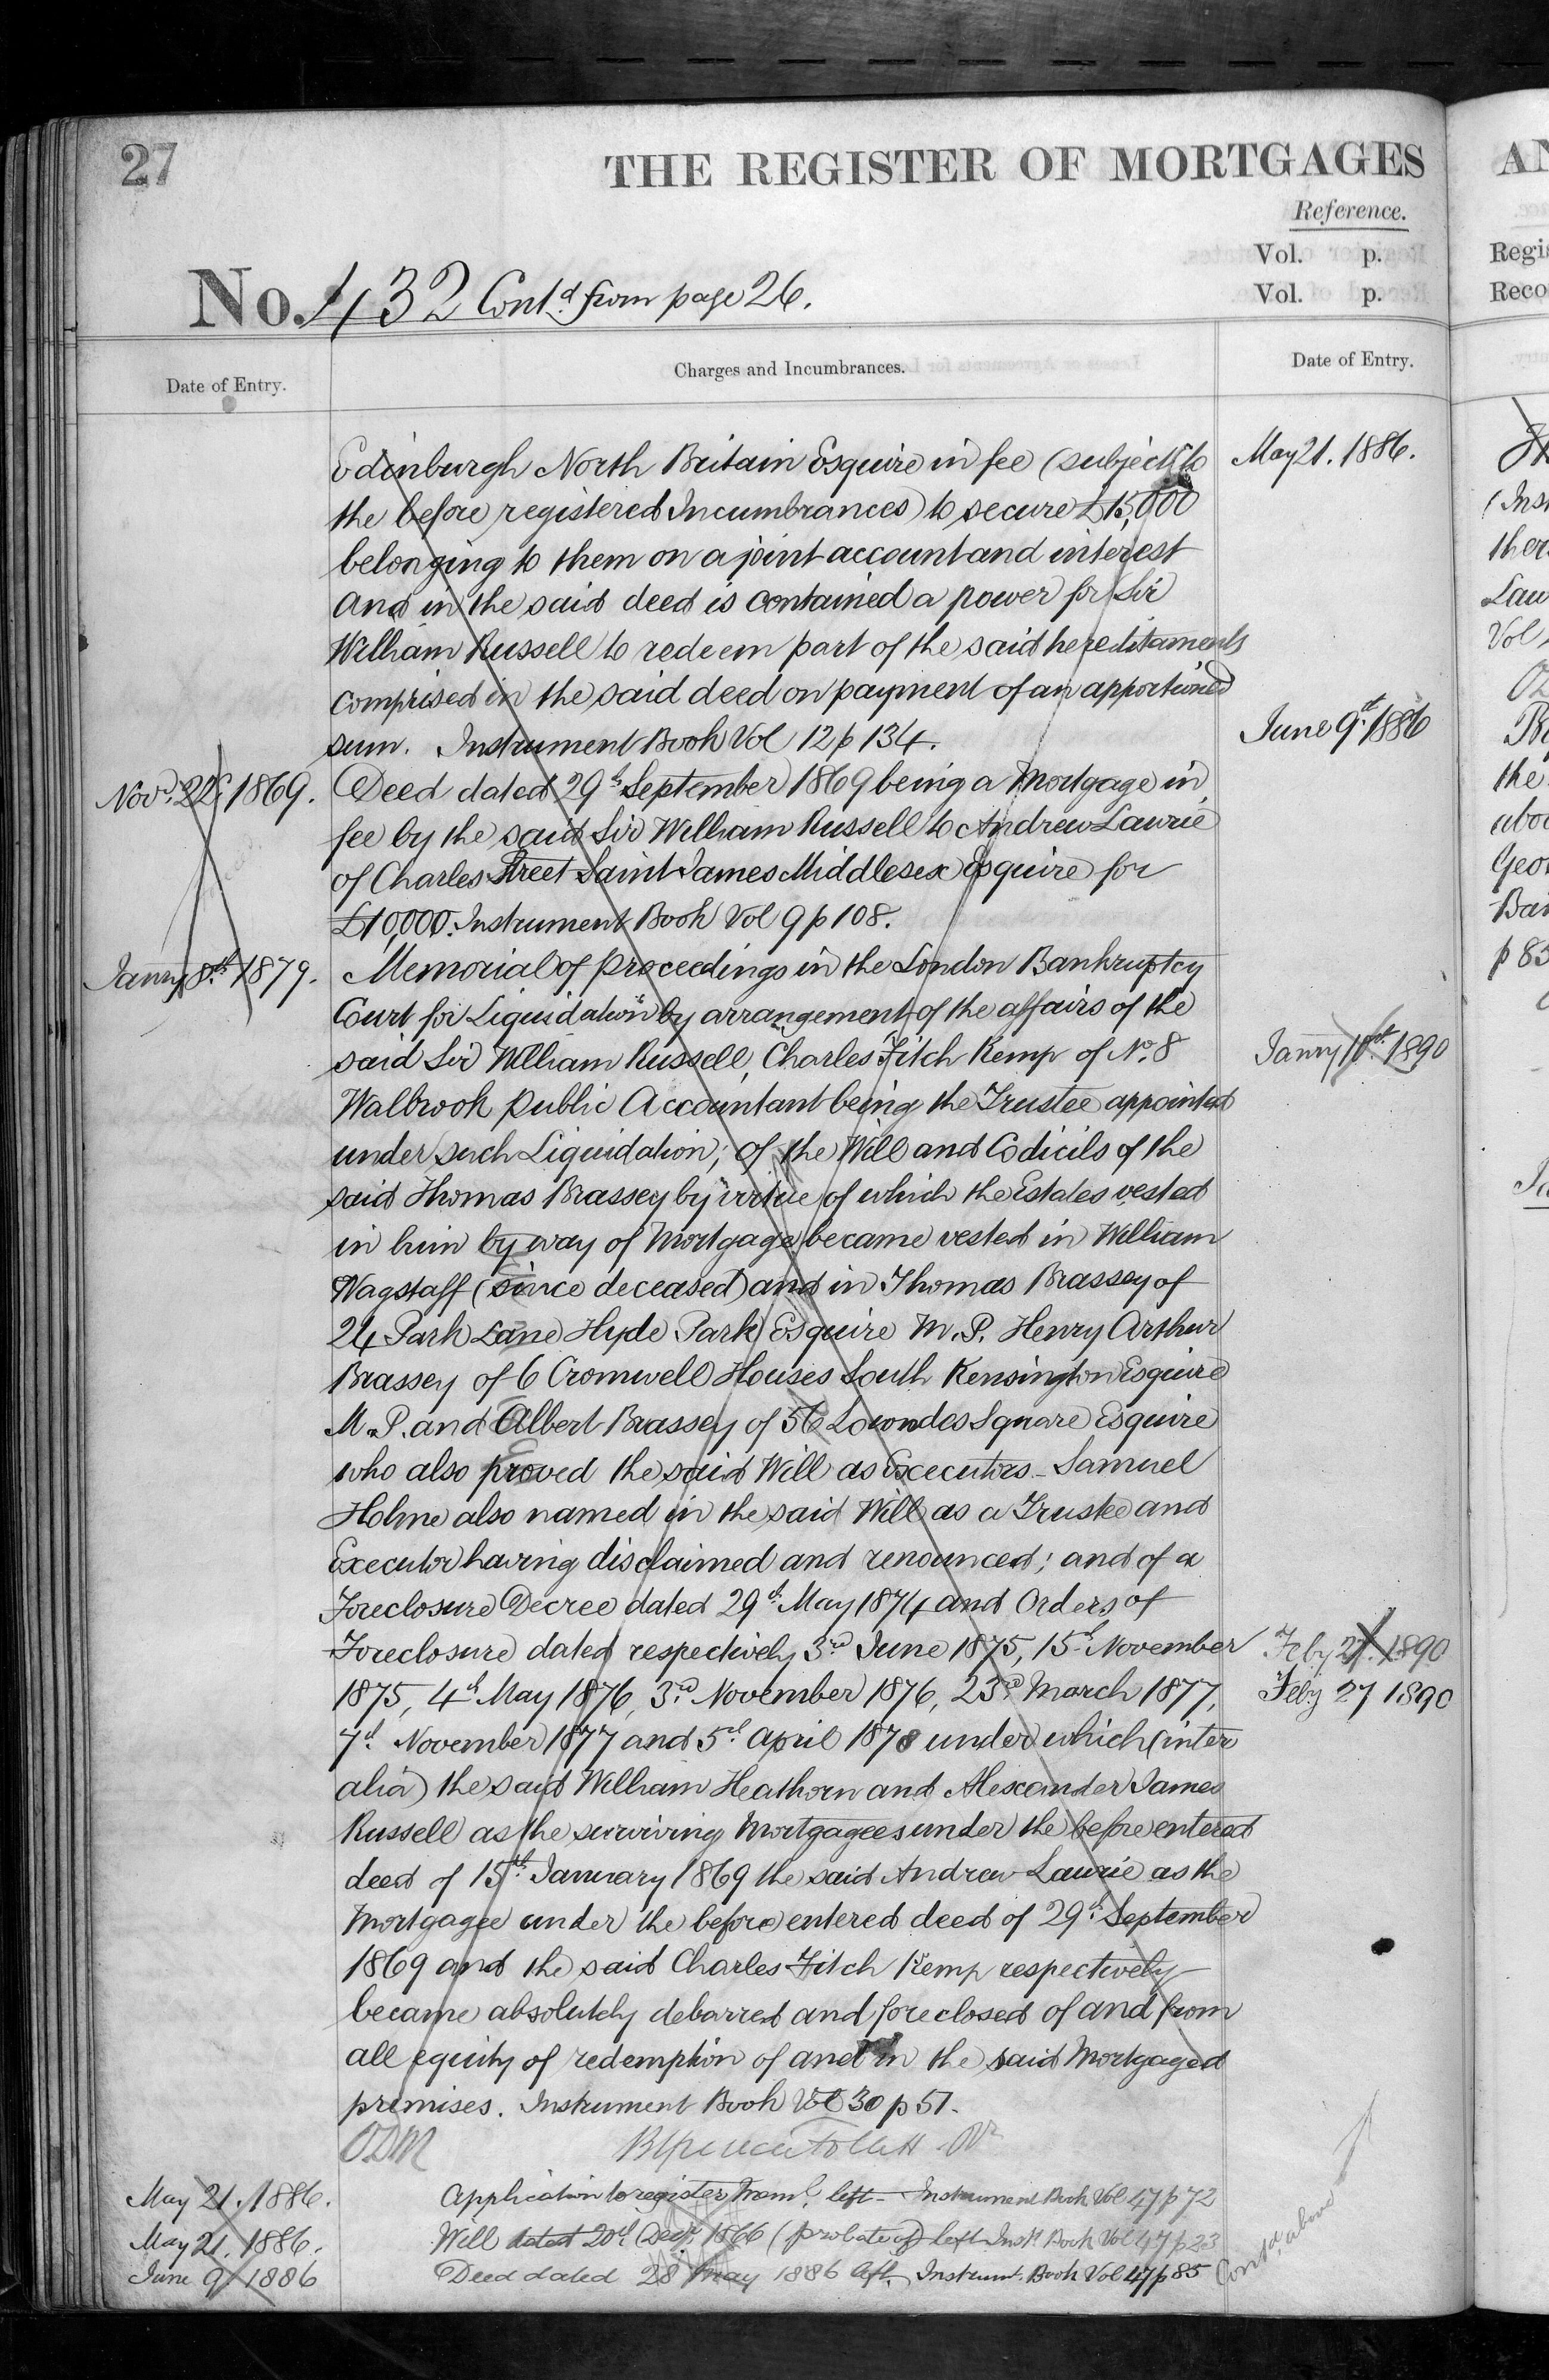 27
THE REGISTER OF MORTGAGES
Reference.
Vol. p.
Vol. p.
No. 432 Contd. from page 26.
Date of Entry.
Charges and Incumbrances.
Date of Entry.
Edinburgh North Britain Esquire in fee (subject to
the before registered Incumbrances) to secure £15,000
belonging to them on a joint account and interest
And in the said deed is contained a power for Sir
William Russell to redeem part of the said hereditaments
comprised in the said deed on payment of an apportioned
sum. Instrument Book Vol 12 p 134.
Novr. 22d. 1869. Deed dated 29th September 1869 being a Mortgage in
fee by the said Sir William Russell to Andrew Lawrie
of Charles Street Saint James Middlesex Esquire for
£10,000. Instrument Book Vol 9 p 108.
Janry 8th. 1879. Memorial of proceedings in the London Bankruptcy
Court for Liquidation by arrangement of the affairs of the
said Sir William Russell, Charles Fitch Kemp of No. 8
Walbrook public Accountant being the Trustee appointed
under such Liquidation; of the Will and Codicils of the
said Thomas Brassey by virtue of which the Estates vested
in him by way of Mortgage became vested in William
Wagstaff (since deceased) and in Thomas Brassey of
24 Park Lane Hyde Park Esquire M.P. Henry Arthur
Brassey of 6 Cromwell Houses South Kensington Esquire
M.P. and Albert Brassey of 56 Lowndes Square Esquire
who also proved the said Will as Executors - Samuel
Holme also named in the said Will as a Trustee and
Executor having disclaimed and renounced; and of a
Foreclosure Decree dated 29th. May 1874 and Orders of
Foreclosure dated respectively 3rd June 1875, 15th November
1875, 4th May 1876, 3rd. November 1876, 23rd March 1877,
7th. November 1877 and 5th. April 1878 under which (inter
alia) the said William Heathorn and Alexander James
Russell as the surviving Mortgagees under the before entered
deed of 15th. January 1869 the said Andrew Lawrie as the
Mortgagee under the before entered deed of 29th. September
1869 and the said Charles Fitch Kemp respectively
became absolutely debarred and foreclosed of and from
all equity of redemption of and in the said Mortgaged
premises. Instrument Book Vol 30 p 51.
ODM
May 21. 1886. Application to register left - Instrument Book Vol 47 p 72
May 21. 1886. Will dated 20th Decr. 1866 (probate of) left Inst. Book Vol 47 p 23
June 9. 1886 Deed dated 28 May 1886 left. Instrumt. Book Vol 47 p 85
Contd. above
May 21. 1886.
June 9th. 1886
Janry 10th. 1890
Feby 27. 1890
Feby 27 1890
AN
Regis
Reco
(Ins
ther
Law
Vol
the
abov
Geor
Bar
p 85